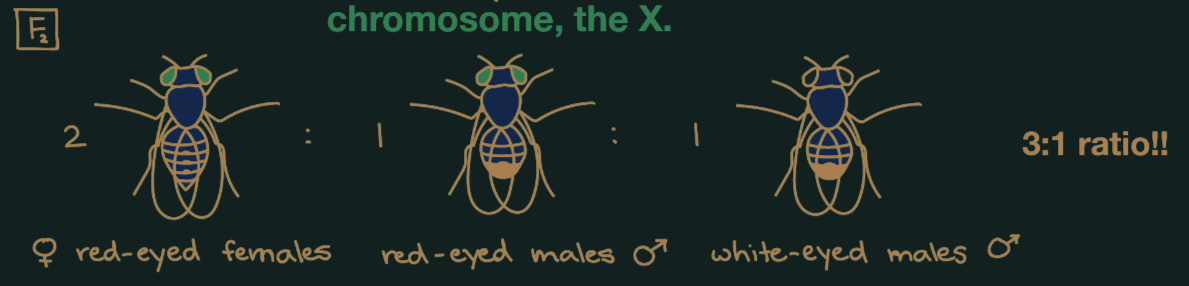 chromosome, the X.
F₂
2 : 1 : 1
3:1 ratio!!
♀ red-eyed females red-eyed males ♂ white-eyed males ♂